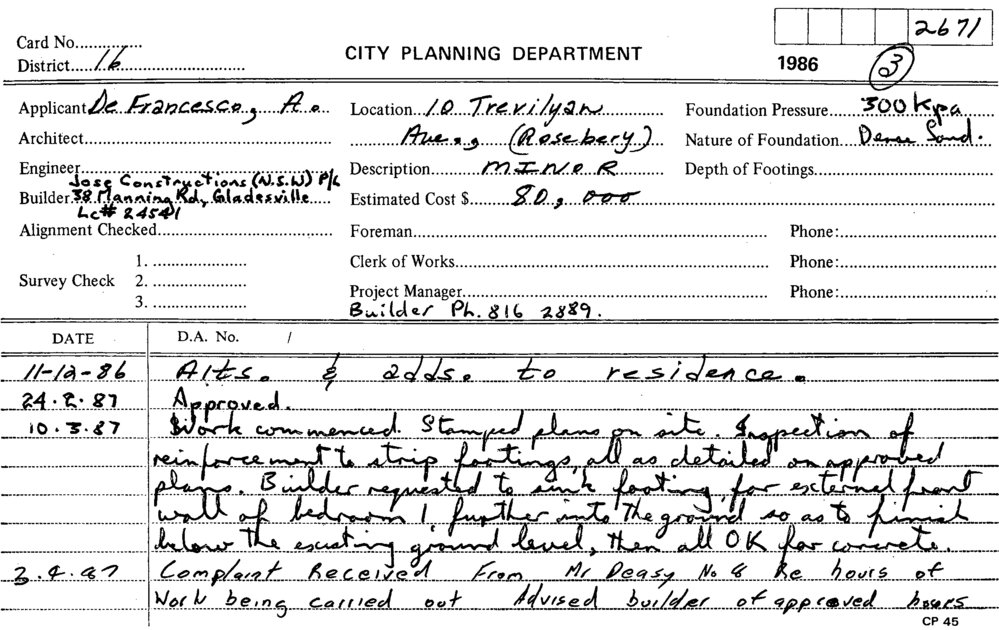 2671
Card No...............
District.....16
CITY PLANNING DEPARTMENT
1986
3
Applicant De Francesco, A.
Location 10 Trevilyan
Foundation Pressure 300 kpa
Architect
Ave., (Rosebery)
Nature of Foundation Dense Sand.
Engineer
Description MINOR
Depth of Footings
Jose Constructions (N.S.W) P/L
Builder 38 Manning Rd, Gladesville
Estimated Cost $ 80,000
Lc# 24541
Alignment Checked
Foreman
Phone:
1.
Clerk of Works
Phone:
Survey Check 2.
Project Manager
Phone:
3.
Builder Ph. 816 2889.
DATE
D.A. No. /
11-12-86 Alts. & adds. to residence.
24.2.87 Approved.
10.3.87 Work commenced. Stamped plans on site. Inspection of
reinforcement to strip footings, all as detailed on approved
plans. Builder requested to sink footing, for external front
wall of bedroom 1, further into the ground so as to finish
below the existing ground level, then all OK for concrete.
3.4.87 Complaint Received From Mr Deasy No 8 Re hours of
Work being carried out Advised builder of approved hours
CP 45